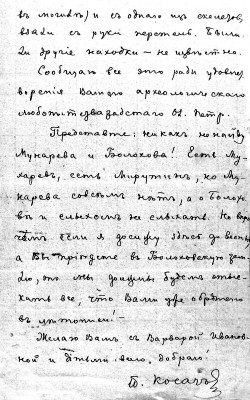 въ могилѣ) и съ однаго изъ скелетов
взяли съ руки перстень. Были
ли другіе находки — не извѣстно.
Сообщаю все это ради удовле
ворения Вашего археологическаго
любопытства
Представте: никакъ не найду
Мунарева и Болохова! Есть Му
харевъ, есть но Му
нарева совсѣмъ нѣтъ, а о Болохо
вѣ и слыхомъ не слыхать. Но
если я досижу здѣсь до весны,
а Вы приѣдете въ Болоховскую зем
лю, то мы должны будемъ отыс
кать все, что Вами уже обрѣтено
въ лѣтописи! —
Желаю Вамъ съ Варварой Иванов
ной и дѣтьми всего добраго!
П. Косачъ